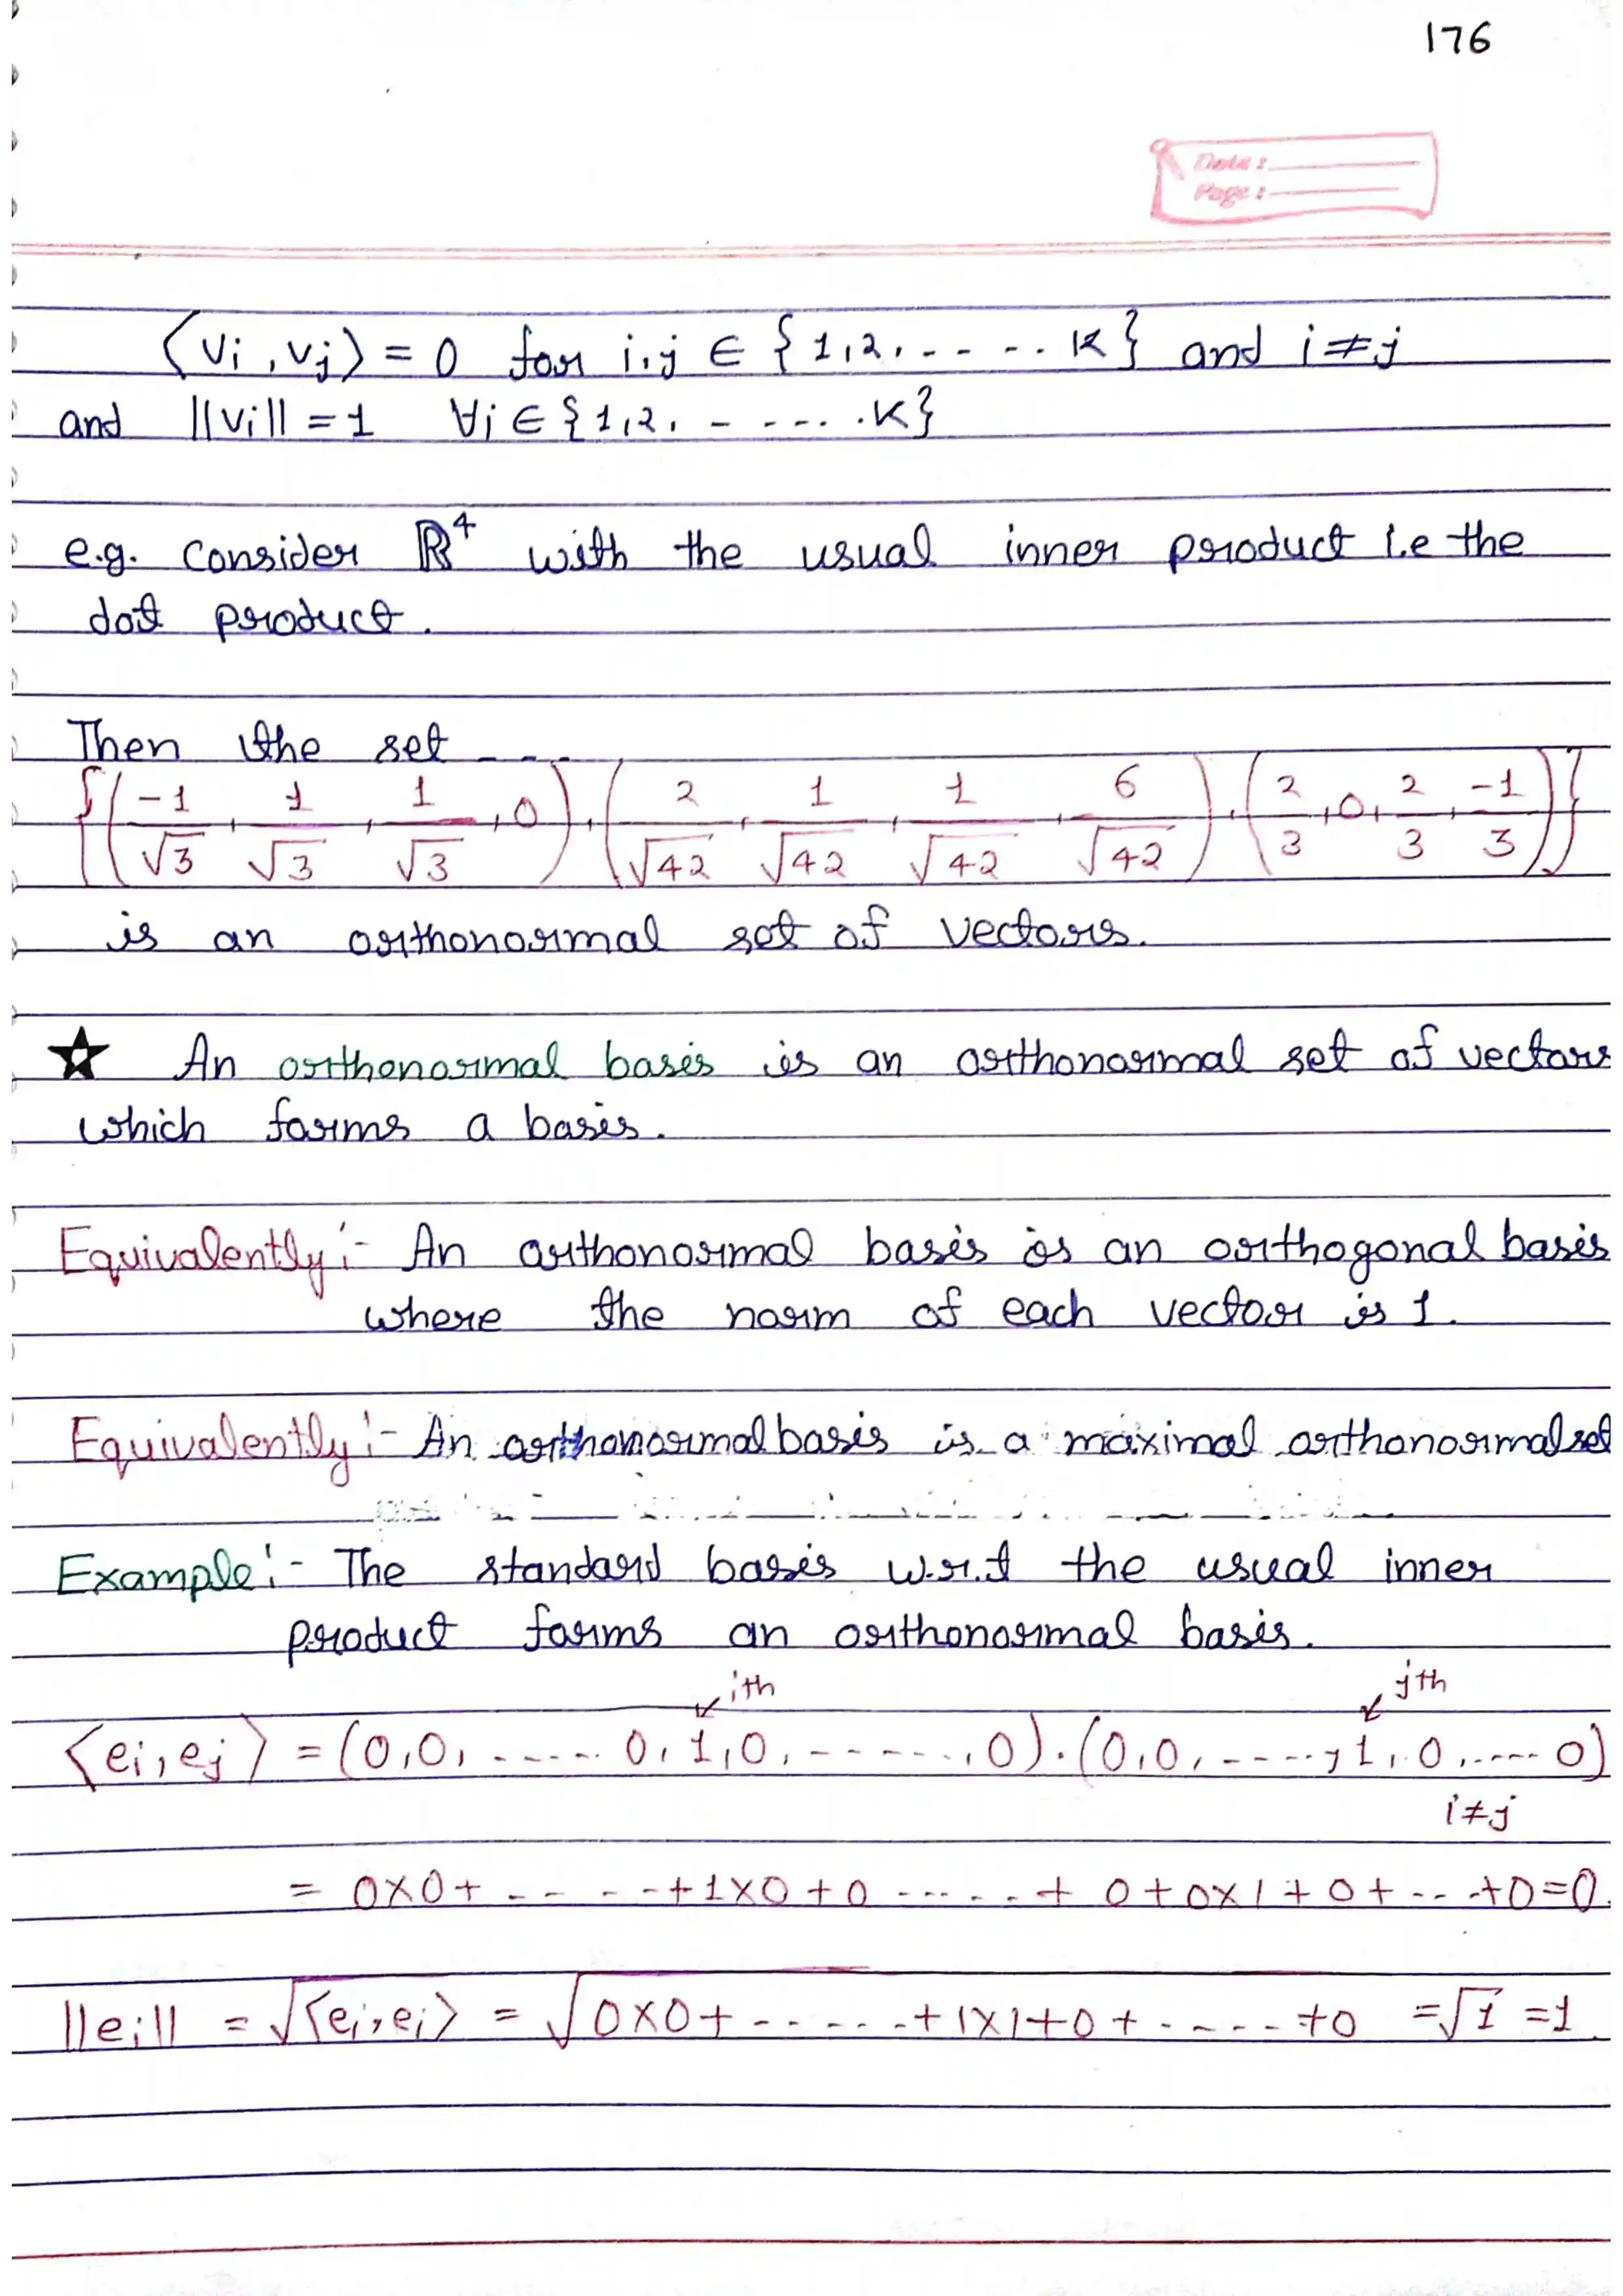 176
Date :
Page :
⟨vi , vj⟩ = 0 for i, j ∈ {1,2, ----.. K} and i ≠ j
and ||vi|| = 1 ∀i ∈ {1,2, - ---. .K}
e.g. Consider ℝ⁴ with the usual inner product i.e the
dot product.
Then the set ---
{(-1/√3, 1/√3, 1/√3, 0), (2/√42, 1/√42, 1/√42, 6/√42), (2/3, 0, 2/3, -1/3)}
is an orthonormal set of vectors.
☆ An orthonormal basis is an orthonormal set of vectors
which forms a basis.
Equivalently :- An orthonormal basis is an orthogonal basis
where the norm of each vector is 1.
Equivalently :- An orthonormal basis is a maximal orthonormal set
Example :- The standard basis w.r.t the usual inner
product forms an orthonormal basis.
ith jth
⟨ei, ej⟩ = (0,0, ..---. 0, 1, 0, ------, 0).(0,0, ----, 1, 0, .---- 0)
i≠j
= 0×0+ - - - - -+1×0+0 ---..-+ 0+0×1+0+-- -+0=0.
||ei|| = √⟨ei, ei⟩ = √0×0+ - - - - - -+1×1+0+ - ---- +0 = √1 = 1.